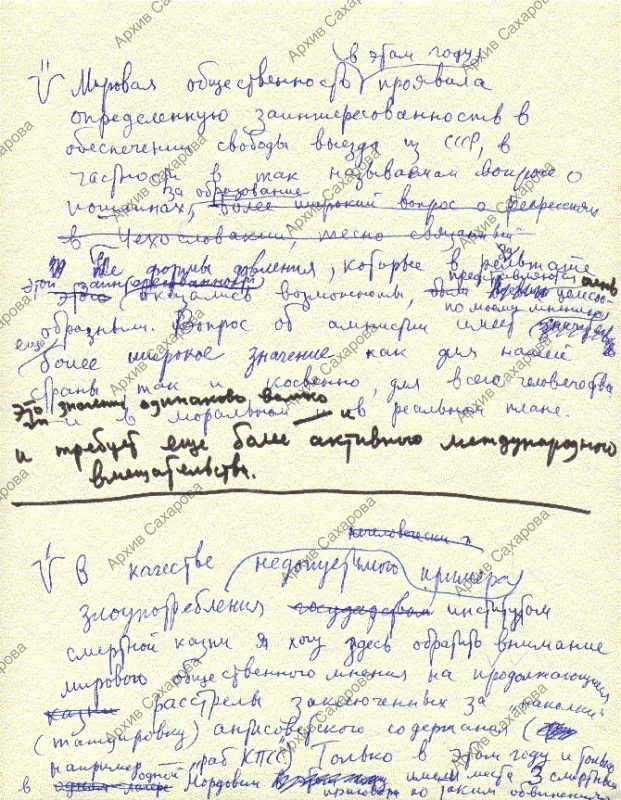 (в этом году)
Мировая общественность проявила
определенную заинтересованность в
обеспечении свободы выезда из СССР, в
частности в так называемом вопросе о
за образование
пошлинах, более широкий вопрос о репрессиях
в Чехословакии, тесно связанный
Те формы давления, которые в результате
этой заинтересованности представляются очень
этого оказались возможными, были целесо-
по моему мнению
образными. Вопрос об амнистии имеет
еще
более широкое значение как для нашей
страны так и, косвенно, для всего человечества
Это значение одинаково велико
и в моральном и в реальном плане.
и требует еще более активного международного
вмешательства.
человечески
В качестве недопустимого примера
злоупотребления государством институтом
смертной казни я хочу здесь обратить внимание
мирового общественного мнения на продолжающиеся
казни расстрелы заключенных за наколки
(татуировку) антисоветского содержания (
например "раб КПСС") Только в этом году и только
в одной Мордовии имели место 3 смертных
приговора по таким обвинениям
Архив Сахарова